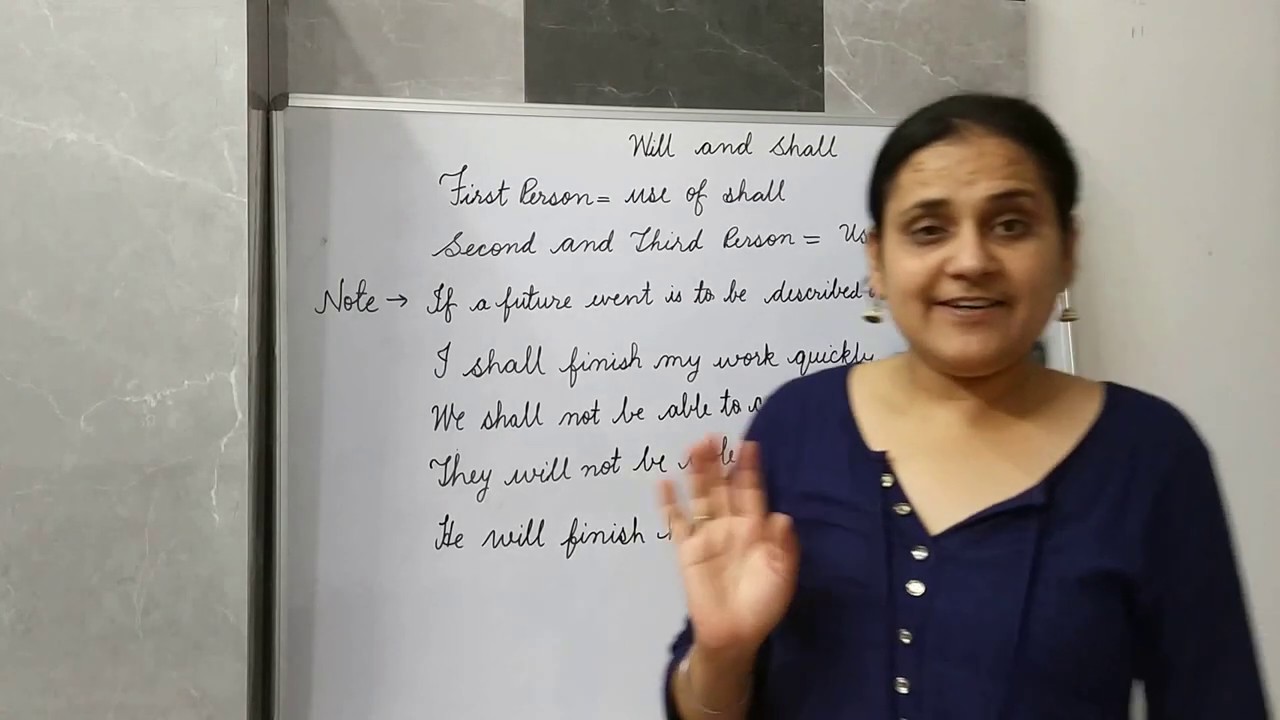 Will and Shall
First Person = use of shall
Second and Third Person = Us
Note → If a future event is to be described
I shall finish my work quickly
We shall not be able to
They will not be
He will finish